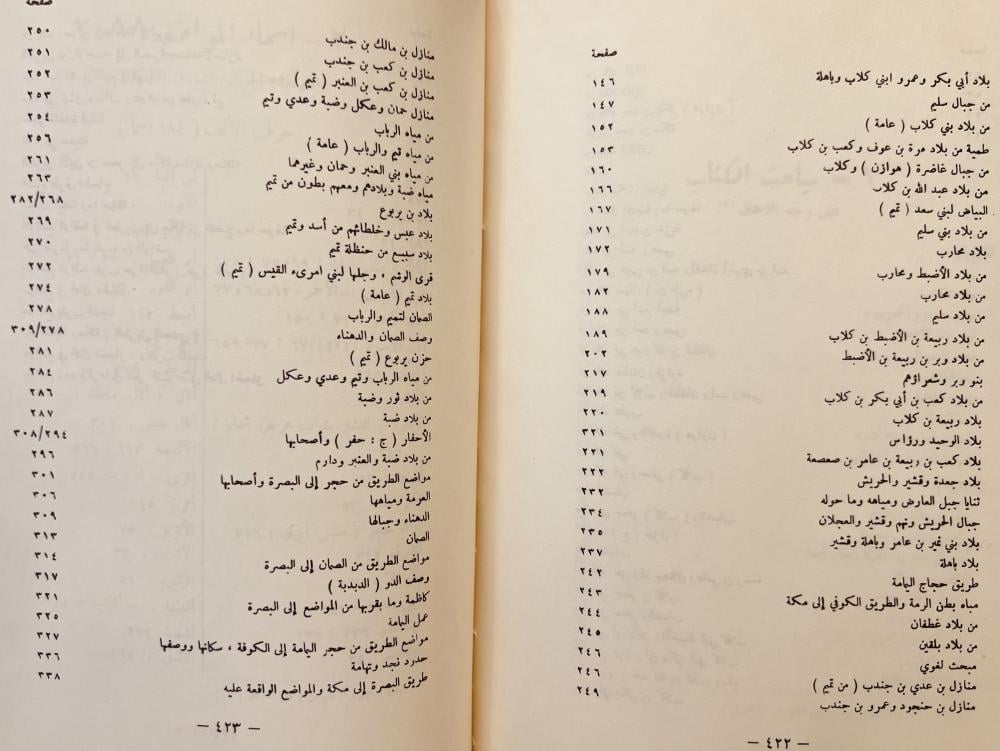 صفحة
بلاد أبي بكر وعمرو ابني كلاب وباهلة ١٤٦
من جبال سليم ١٤٧
من بلاد بني كلاب ( عامة ) ١٥٢
طمية من بلاد مرة بن عوف وكعب بن كلاب ١٥٣
من جبال غاضرة ( هوازن ) وكلاب ١٦٠
من بلاد عبد الله بن كلاب ١٦٦
البياض لبني سعد ( تميم ) ١٦٧
من بلاد بني سليم ١٧١
بلاد محارب ١٧٢
من بلاد الأضبط ومحارب ١٧٩
من بلاد محارب ١٨٢
من بلاد سليم ١٨٨
من بلاد ربيعة بن الأضبط بن كلاب ١٨٩
من بلاد وبر بن ربيعة بن الأضبط ٢٠٢
بنو وبر وشعراؤهم ٢١٧
من بلاد كعب بن أبي بكر بن كلاب ٢١٩
بلاد ربيعة بن كلاب ٢٢٠
بلاد الوحيد ورؤاس ٣٢١
بلاد كعب بن ربيعة بن عامر بن صعصعة ٢٢١
بلاد جعدة وقشير والحريش ٢٢٢
ثنايا جبل العارض ومياهه وما حوله ٢٣٢
جبال الحريش ونهم وقشير والعجلان ٢٣٤
بلاد بني نمير بن عامر وباهلة وقشير ٢٣٥
بلاد باهلة ٢٣٧
طريق حجاج اليمامة ٢٤٢
مياه بطن الرمة والطريق الكوفي إلى مكة ٢٤٣
من بلاد غطفان ٢٤٤
من بلاد بلقين ٢٤٥
مبحث لغوي ٢٤٦
منازل بن عدي بن جندب ( من تميم ) ٢٤٦
منازل بن حنجود وعمرو بن جندب ٢٤٩
— ٤٢٢ —
صفحة
منازل بن مالك بن جندب ٢٥٠
منازل بن كعب بن جندب ٢٥١
منازل بن كعب بن العنبر ( تميم ) ٢٥٢
منازل حمان وعكل وضبة وعدي وتيم ٢٥٣
من مياه الرباب ٢٥٤
من مياه تيم والرباب ( عامة ) ٢٥٦
من مياه بني العنبر وحمان وغيرهما ٢٦١
مياه ضبة وبلادهم ومعهم بطون من تميم ٢٦٣
بلاد بن يربوع ٢٨٢/٢٦٨
بلاد عبس وخلطائهم من أسد وتميم ٢٦٩
بلاد سبيع من حنظلة تميم ٢٧٠
قرى الوشم ، وجلها لبني امرىء القيس ( تميم ) ٢٧٢
بلاد تميم ( عامة ) ٢٧٤
الصمان لتميم والرباب ٢٧٨
وصف الصمان والدهناء ٣٠٩/٢٧٨
حزن يربوع ( تميم ) ٢٨١
من مياه الرباب وتيم وعدي وعكل ٢٨٤
من بلاد ثور وضبة ٢٨٦
من بلاد ضبة ٢٨٧
الأحفار ( ج : حفر ) وأصحابها ٣٠٨/٢٩٤
من بلاد ضبة والعنبر ودارم ٢٩٦
مواضع الطريق من حجر إلى البصرة وأصحابها ٣٠١
العرمة ومياهها ٣٠٦
الدهناء وجبالها ٣٠٩
الصمان ٣١٣
مواضع الطريق من الصمان إلى البصرة ٣١٤
وصف الدو ( الدبدبة ) ٣١٧
كاظمة وما بقربها من المواضع إلى البصرة ٣٢١
عمل اليمامة ٣٢٥
مواضع الطريق من حجر اليمامة إلى الكوفة ، سكانها ووصفها ٣٢٧
حدود نجد وتهامة ٣٣٦
طريق البصرة إلى مكة والمواضع الواقعة عليه ٣٣٨
— ٤٢٣ —